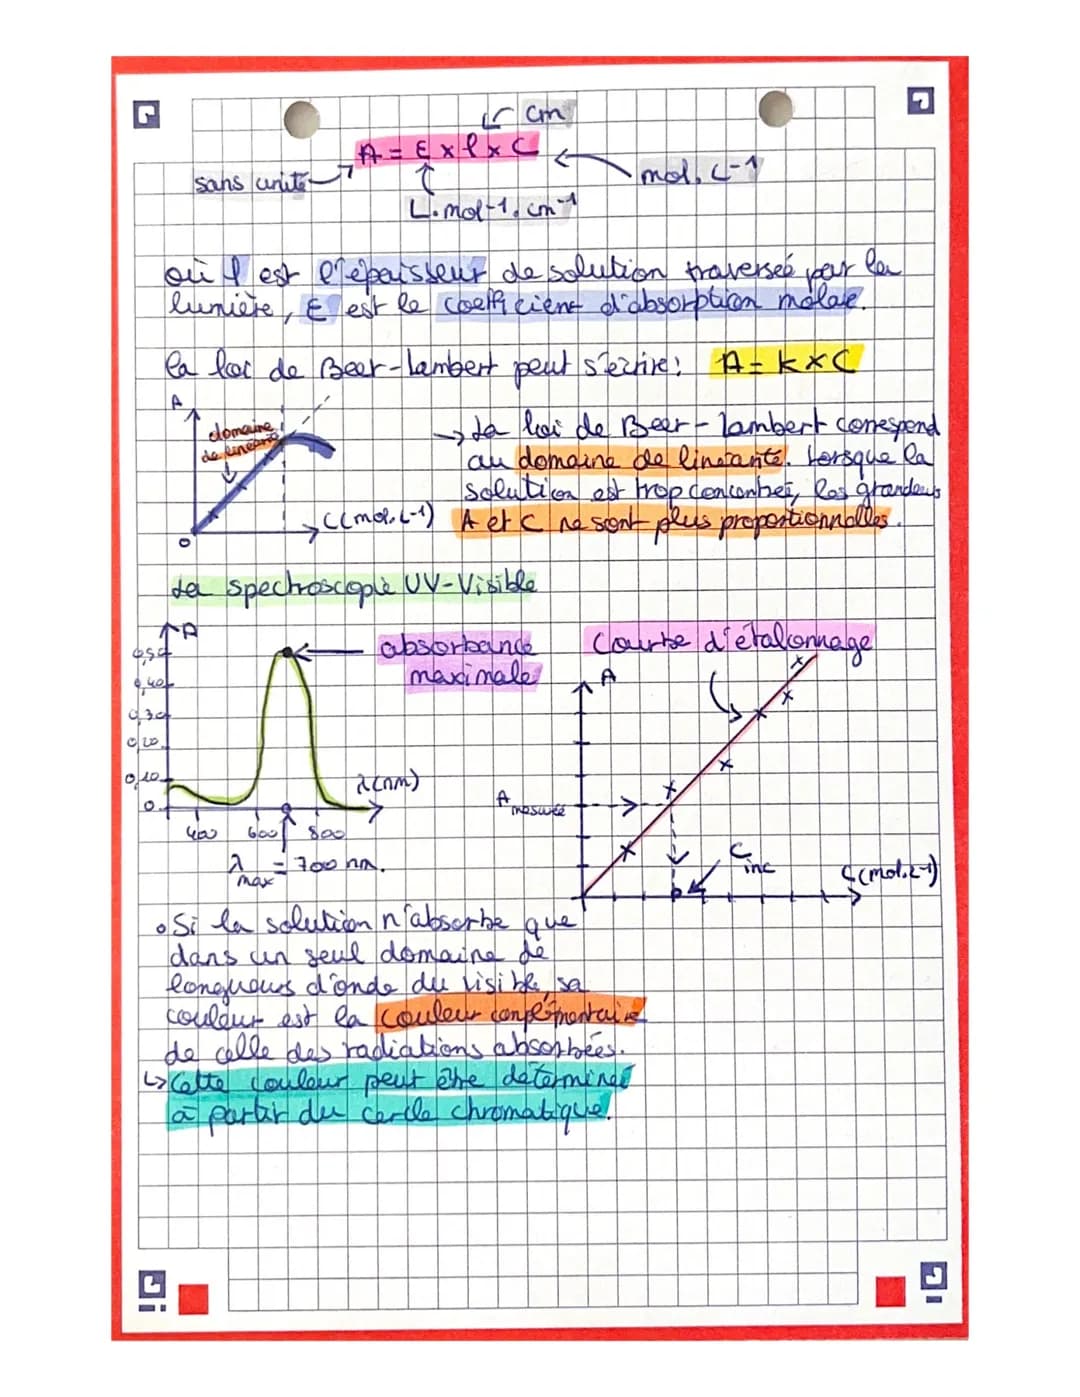 cm
A = ε x l x C
sans unité
mol.L-1
L.mol-1.cm-1
où l est l'épaisseur de solution traversée par la
lumière, ε est le coefficient d'absorption molaire.
la loi de Beer-Lambert peut s'écrire: A = k x C
A
domaine
de linéarité
→ La loi de Beer-Lambert correspond
au domaine de linéarité. Lorsque la
solution est trop concentrée, les grandeurs
C(mol.L-1)
A et C ne sont plus proportionnelles.
0
La spectroscopie UV-Visible
A
0,50
absorbance
maximale
Courbe d'étalonnage
0,40
A
0,30
0,20
0,10
λ(nm)
A mesurée
0
400 600 800
C inc
C(mol.L-1)
λ max = 700 nm.
• Si la solution n'absorbe que
dans un seul domaine de
longueurs d'onde du visible, sa
couleur est la couleur complémentaire
de celle des radiations absorbées.
↳ Cette couleur peut être déterminée
à partir du cercle chromatique.